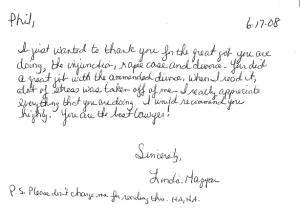 Phil,
6-17-08
I just wanted to thank you for the great job you are
doing, the injunction, rape case and divorce. You did
a great job with the ammended divorce, when I read it,
alot of stress was taken off of me. I really appreciate
everything that you are doing. I would recommend you
highly. You are the best lawyer!
Sincerely,
Linda
P.S. Please don't charge me for reading this. HA, HA.